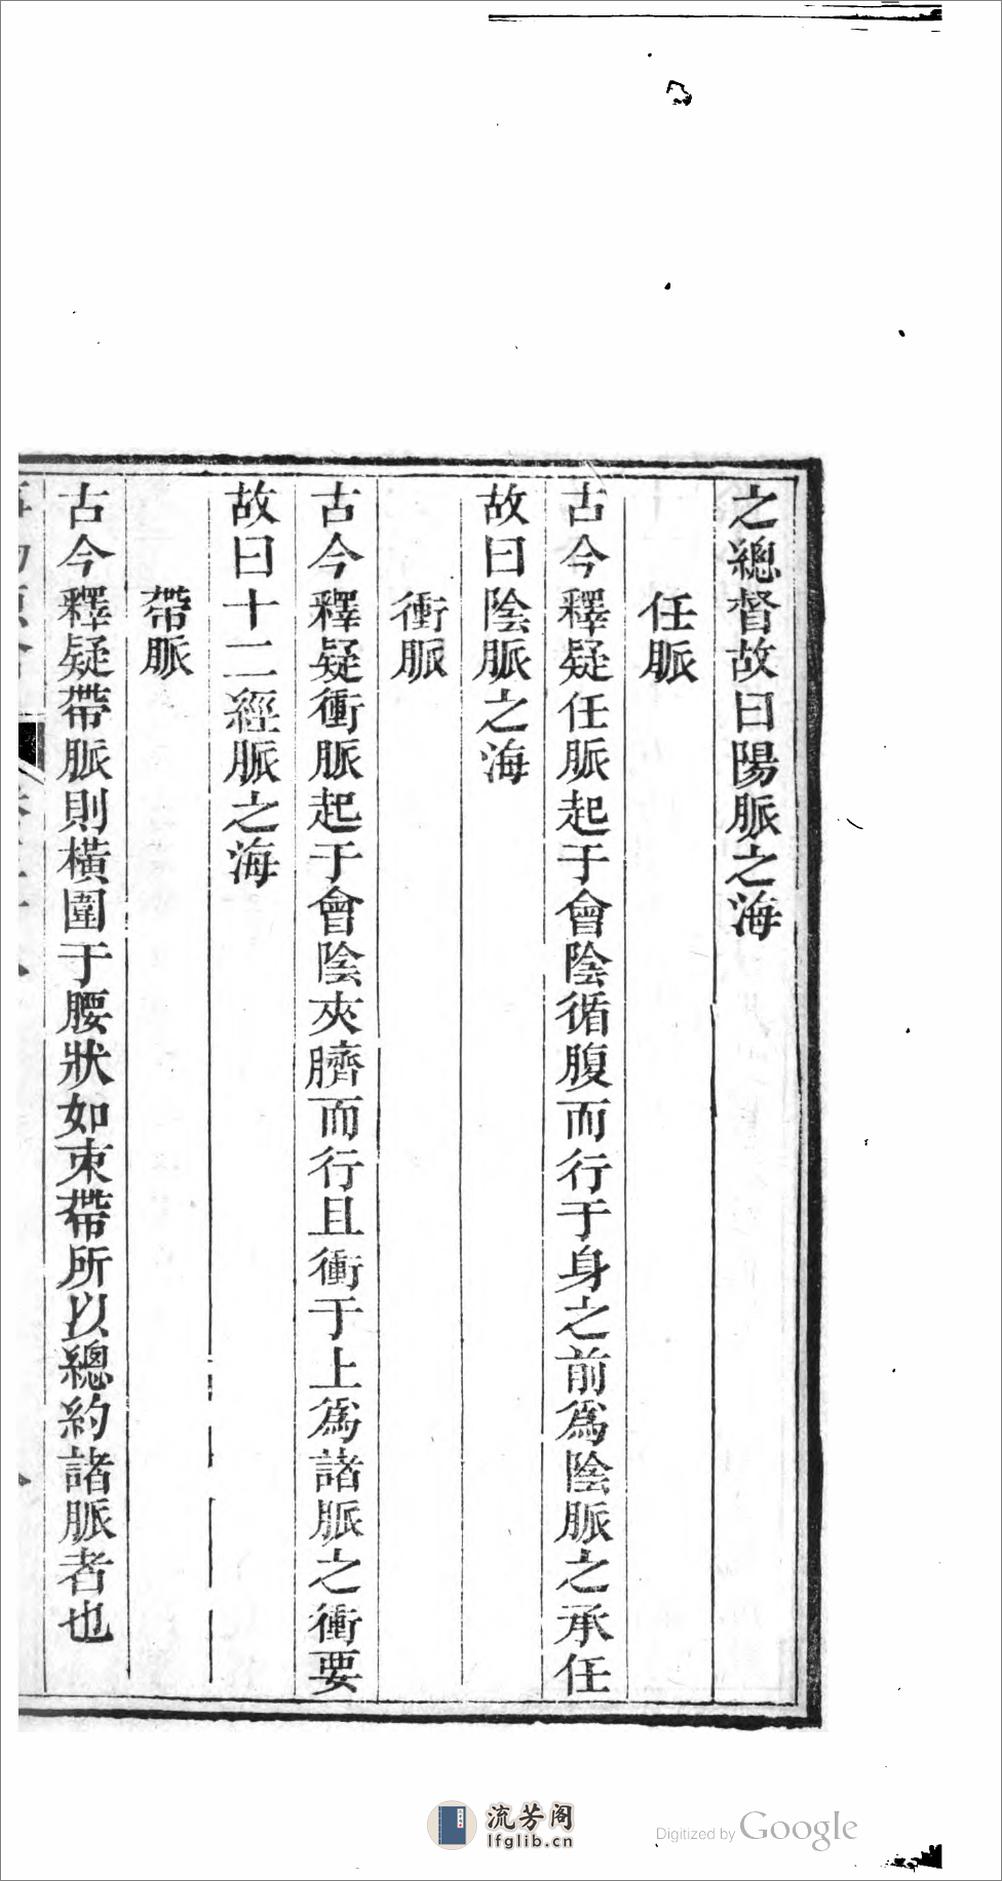 之總督故曰陽脈之海
任脈
古今釋疑任脈起于會陰循腹而行于身之前爲陰脈之承任
故曰陰脈之海
衝脈
古今釋疑衝脈起于會陰夾臍而行且衝于上爲諸脈之衝要
故曰十二經脈之海
帶脈
古今釋疑帶脈則橫圍于腰狀如束帶所以總約諸脈者也
流芳阁
lfglib.cn
Digitized by Google